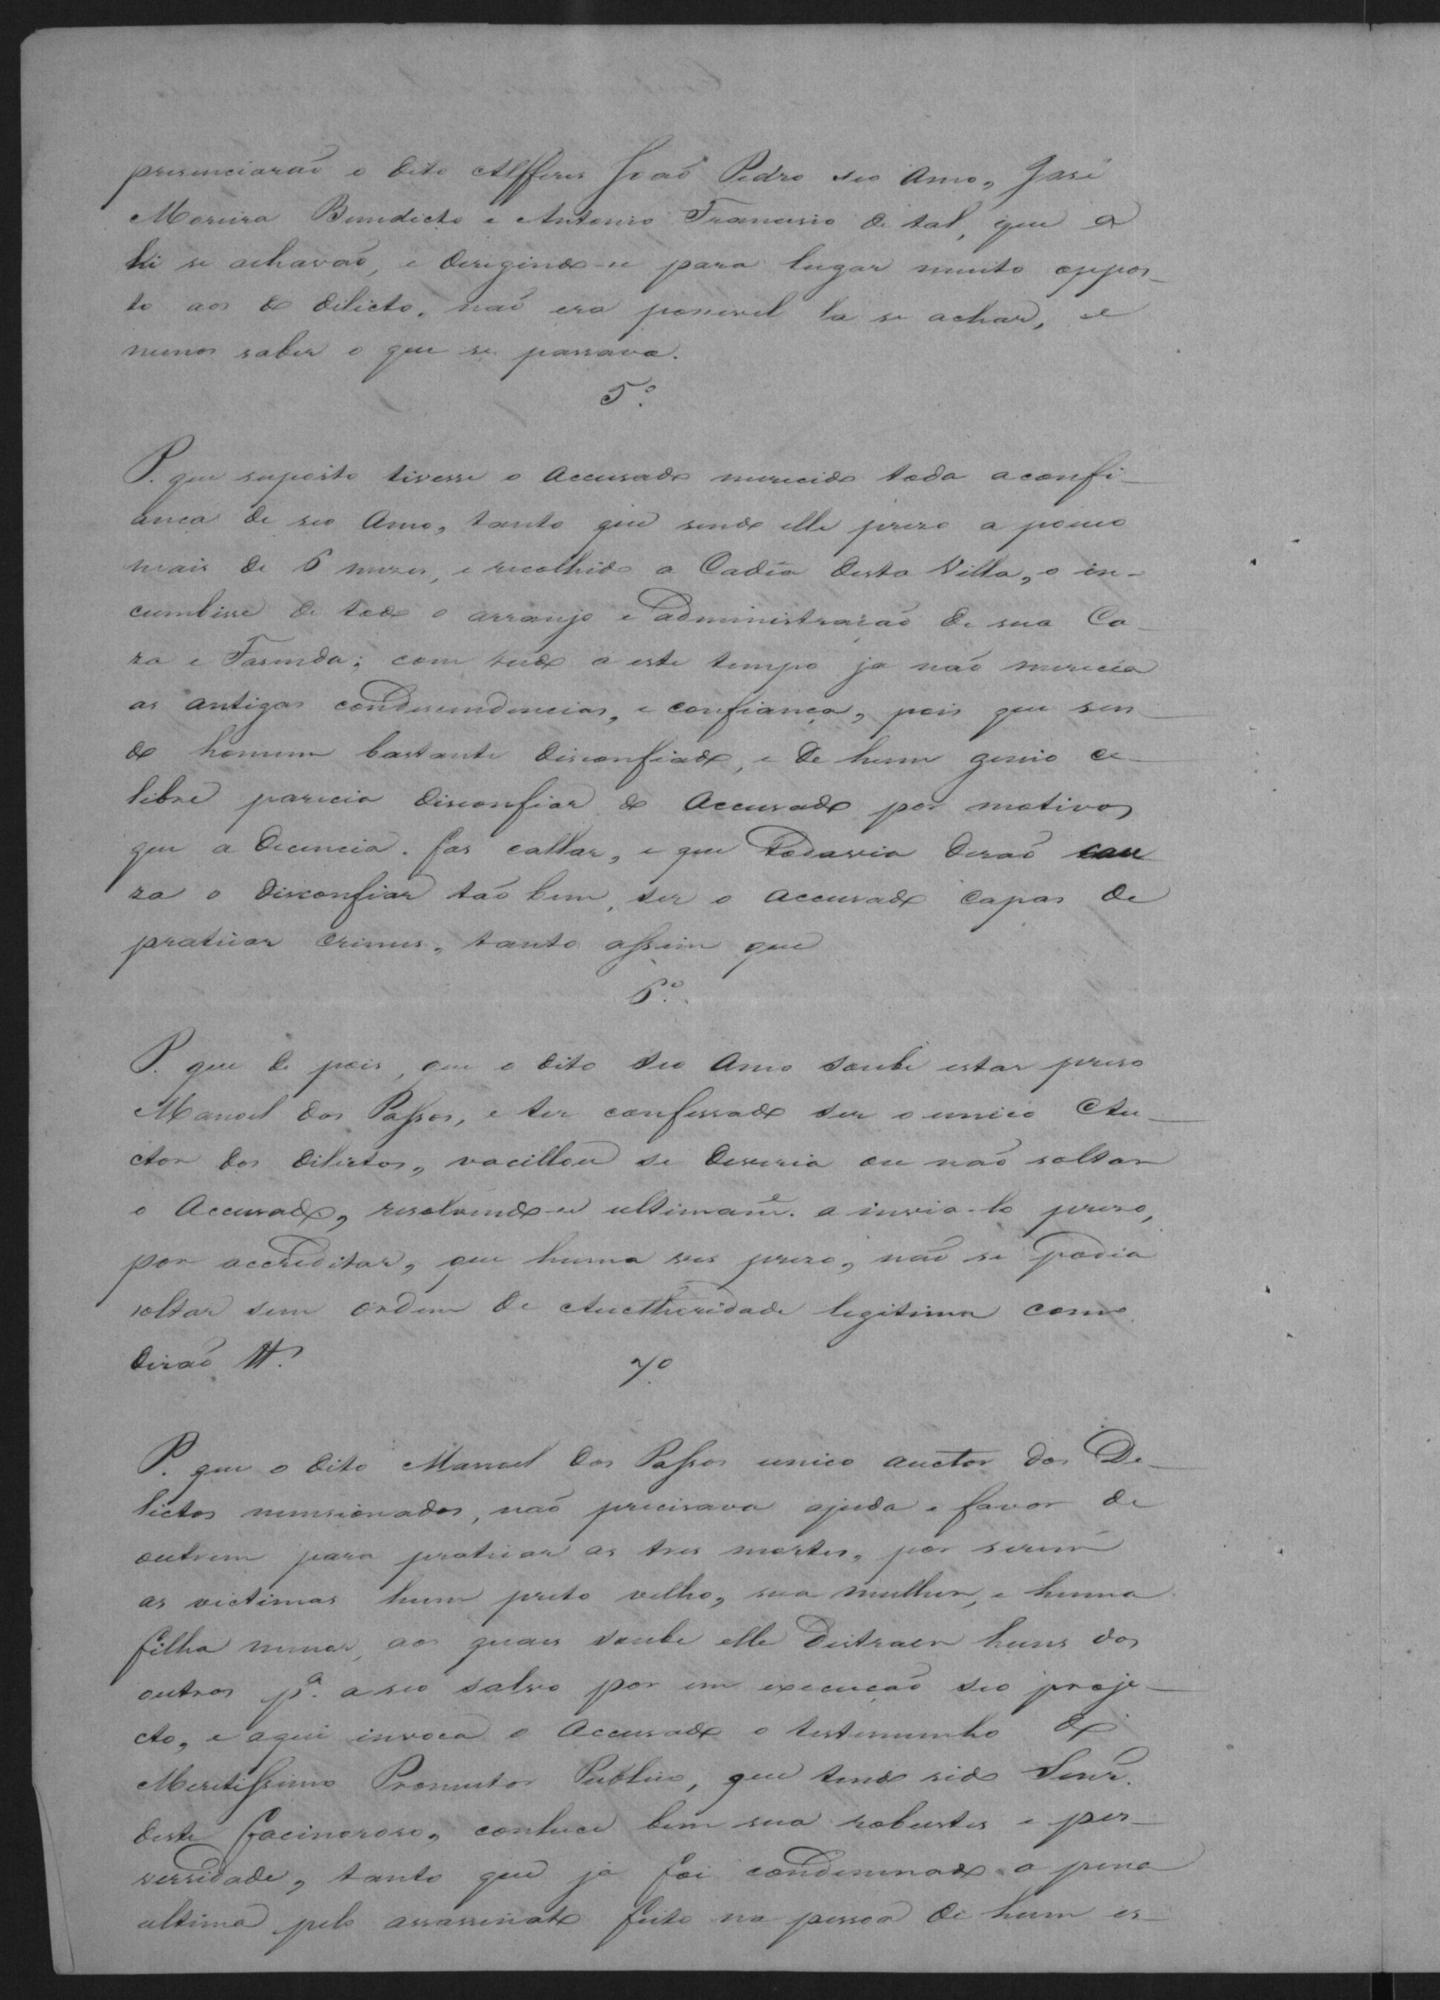 presenciarão o dito Alfferes João Pedro seo Amo, José
Moreira Benedicto e Antonio Francisco de tal, que a
hi se achavão, e deregindo-se para lugar muito oppos-
to aos do delicto, não era possivel la se achar, e
menos saber o que se passava.
5º.
P. que suposto tivesse o Accusado merecido toda a confi-
anca de seo Amo, tanto que sendo elle prezo a pouco
mais de 6 mezes, e recolhido a Cadêa desta Villa, o in-
cumbisse de todo o arranjo e administração de sua Ca-
za e Fasenda; com tudo a este tempo ja não merecia
as antigas condescendencias, e confiança, pois que sen-
do homem bastante disconfiado, e de hum genio ce-
libre parecia disconfiar do Accusado por motivos
que a decencia fas callar, e que todavia derão cau
za o disconfiar tão bem, ser o accusado capas de
praticar crimes, tanto assim que
6º.
P. que de pois, que o dito seo Amo soube estar preso
Manoel dos Passos, e ter confessado ser o unico Au-
ctor dos delictos, vacillou se deveria ou não soltar
o Accusado, resolvendo-se ultimamᵉ. a invia-lo prezo,
por accreditar, que huma ves prezo, não se podia
soltar sem ordem de Aucthoridade legitima como
dirão TT.
7º.
P. que o dito Manoel dos Passos unico auctor dos De-
lictos mensionados, não precisava ajuda e favor de
outrem para praticar as tres mortes, por serem
as victimas hum preto velho, sua mulher, e huma
filha menor, aos quaes soube elle distraer huns dos
outros pª. a seo salvo por em execução seo proje-
cto, e aqui invoca o Accusado o testemunho do
Meritissimo Promutor Publico, que tendo sido Senr.
deste facinoroso, conhece bem sua robustes e per-
versidade, tanto que já foi condemnado a pena
ultima pelo assassinato feito na pessoa de hum es-